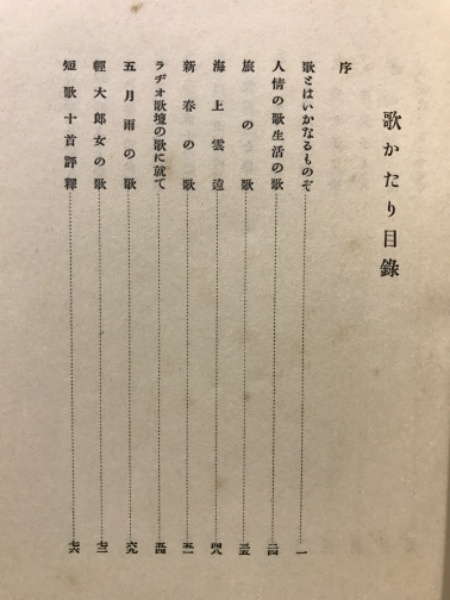 歌かたり目錄
序
歌とはいかなるものぞ……一
人情の歌生活の歌……二四
旅の歌……三五
海上雲遠……四八
新春の歌……五一
ラヂオ歌壇の歌に就て……五四
五月雨の歌……六九
輕大郎女の歌……七二
短歌十首評釋……七六